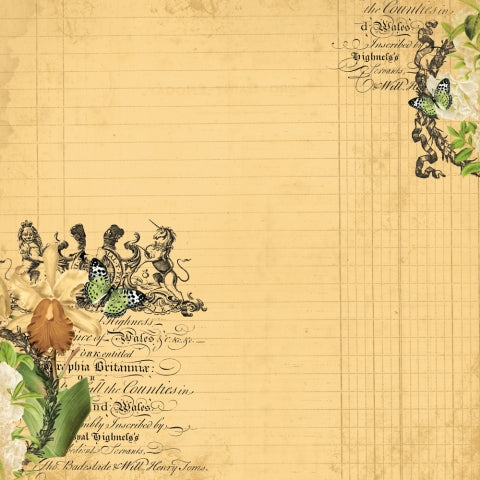 the Counties in
d Wales
Inscribed by
Highneſs's
Servants,
& Will. H
Highneſs
nce of Wales &c. &c.
ORK entitled
raphia Britanniæ:
OR
all the Counties in
nd Wales
mbly Inscribed by
yal Highneſs's
bedient Servants,
Tho. Badeslade & Will. Henry Toms.